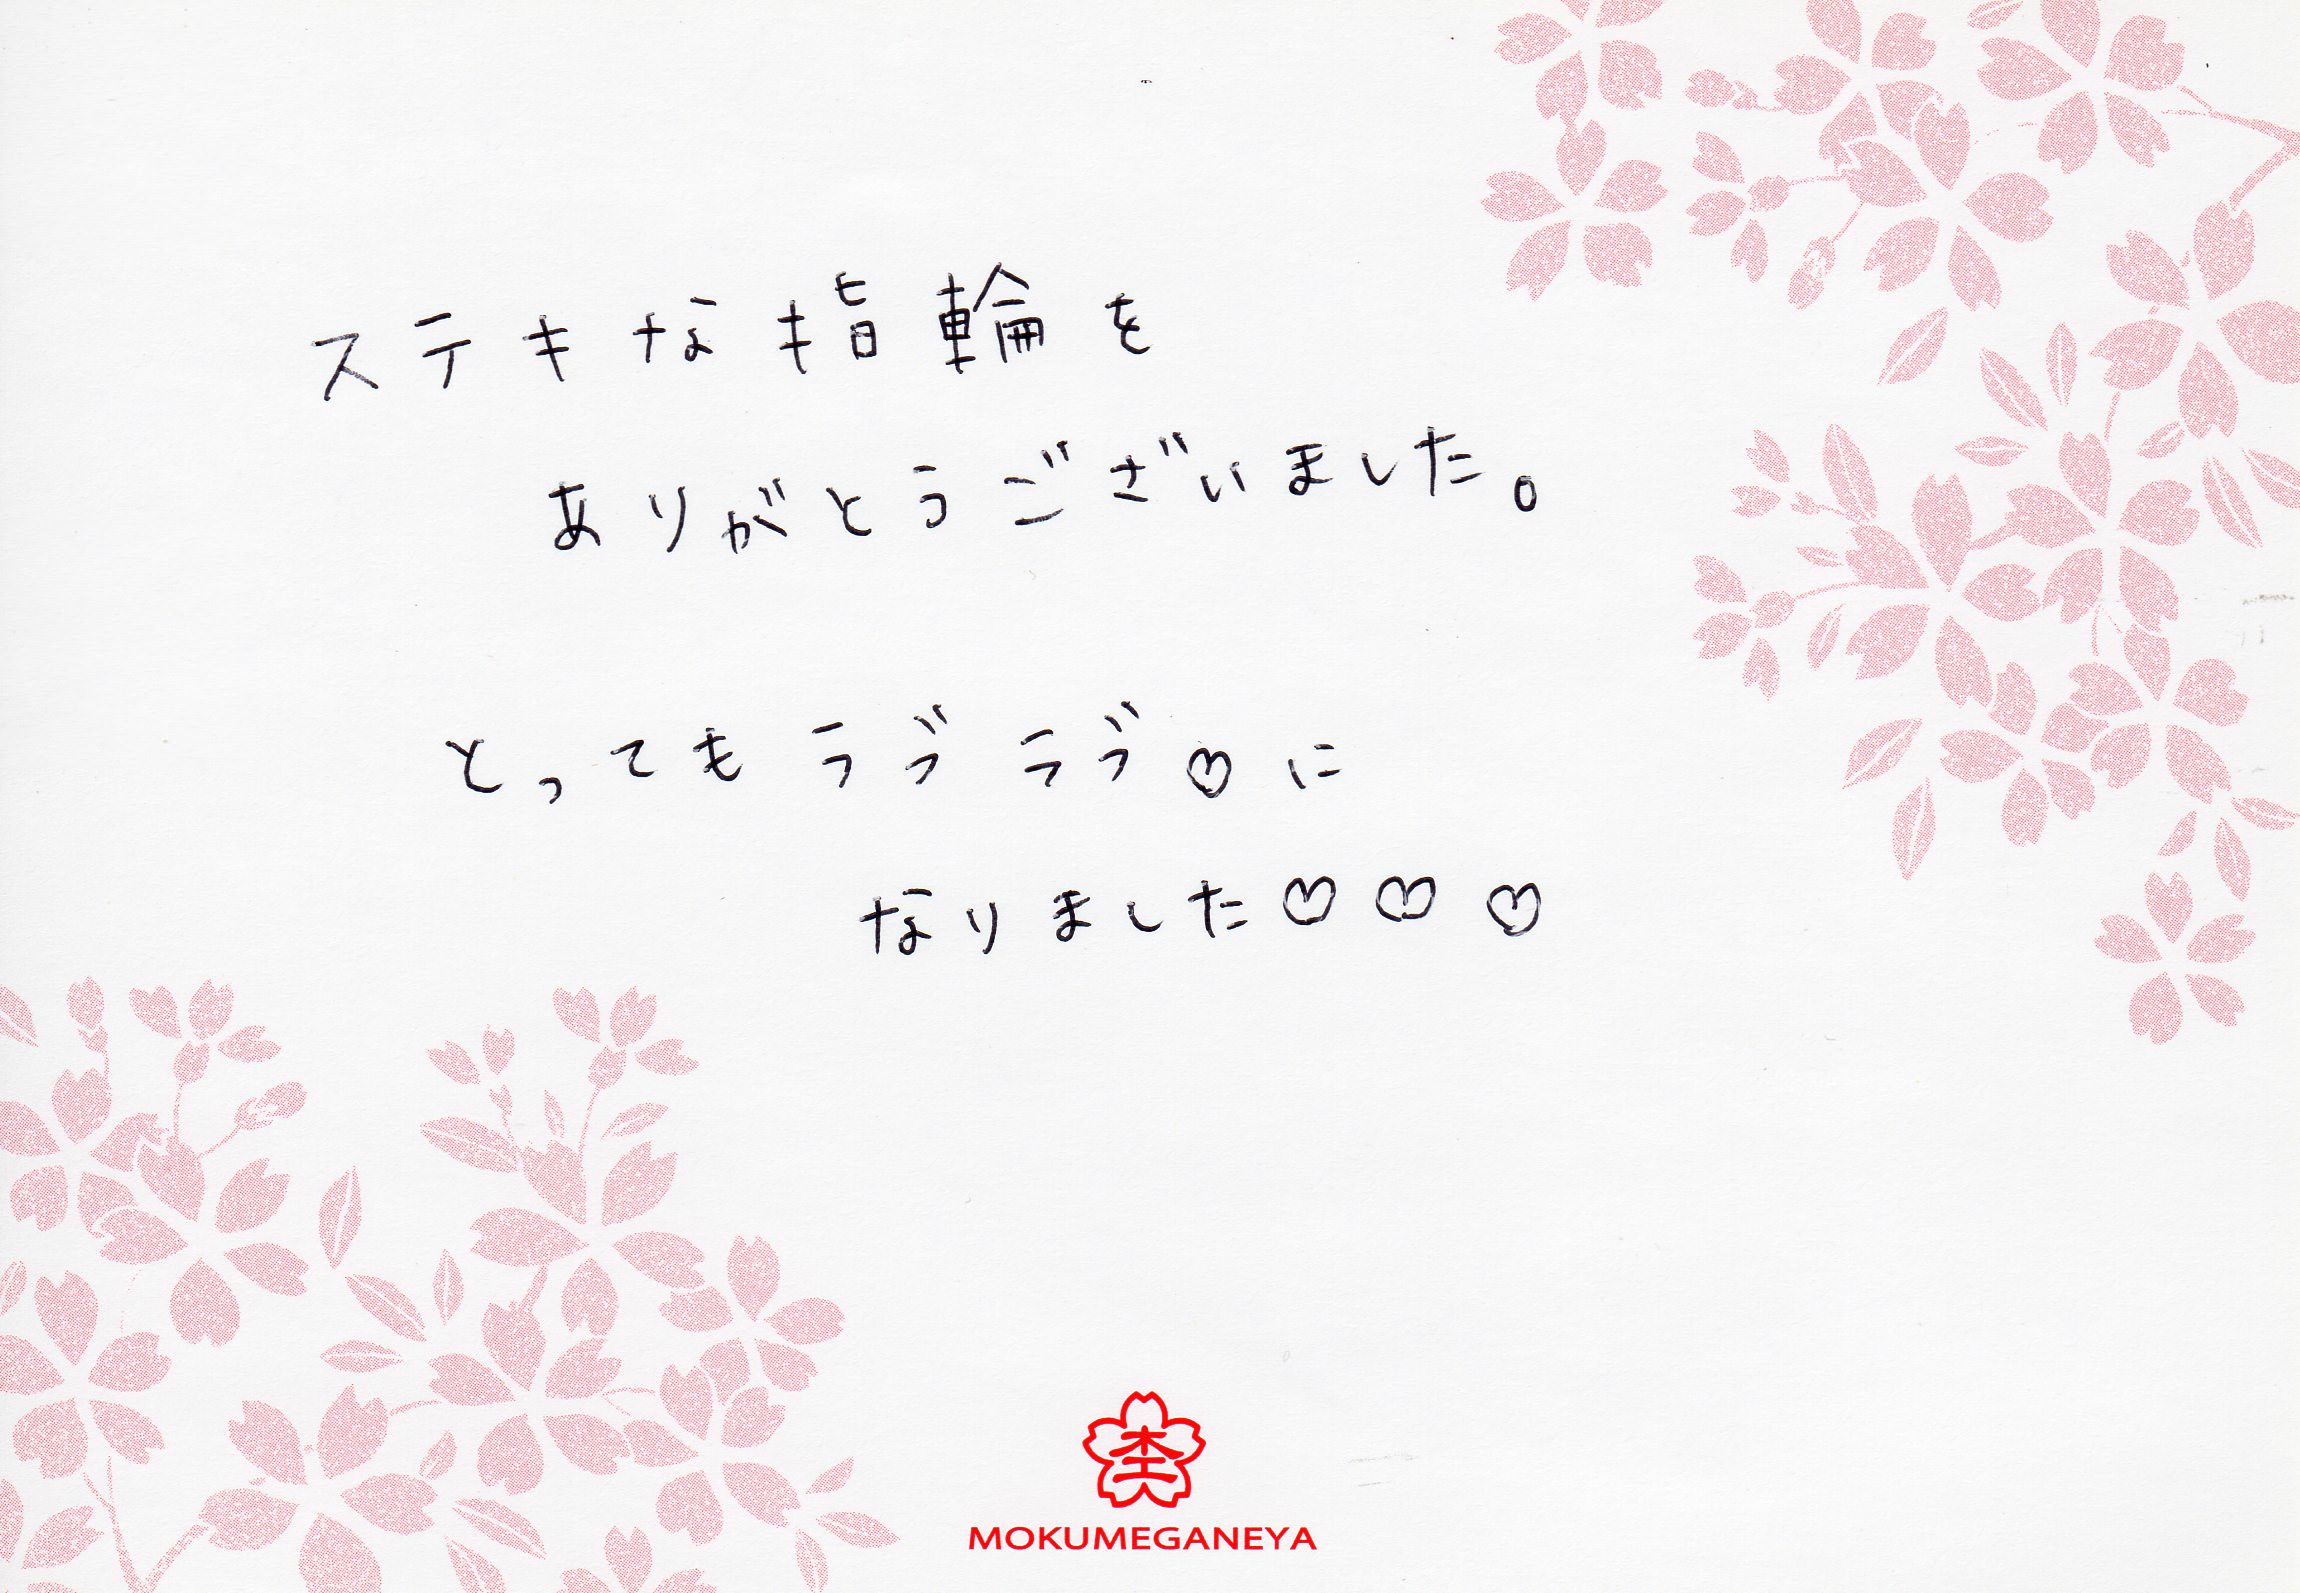 ステキな指輪を
ありがとうございました。
とってもラブラブ♡に
なりました♡♡♡
MOKUMEGANEYA